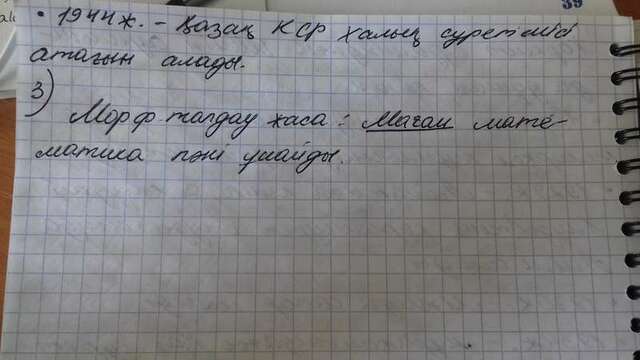 • 1944ж. - Қазақ КСР халық суретшісі
атағын алады.
3)
Морф талдау жаса : Маған мате-
матика пәні ұнайды.
39